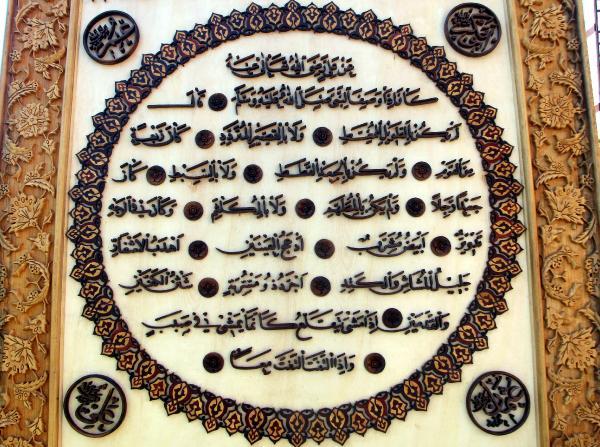 عن علي رضي الله تعالى عنه
كان إذا وصف النبي صلى الله عليه وسلم قال
لم يكن بالطويل الممغط ولا بالقصير المتردد كان ربعة
من القوم ولم يكن بالجعد القطط ولا بالسبط كان
جعدا رجلا ولم يكن بالمطهم ولا بالمكلثم وكان في الوجه
تدوير أبيض مشرب أدعج العينين أهدب الأشفار
جليل المشاش والكتد أجرد ذو مسربة شثن الكفين
والقدمين إذا مشى تقلع كأنما يمشي في صبب
وإذا التفت التفت معا